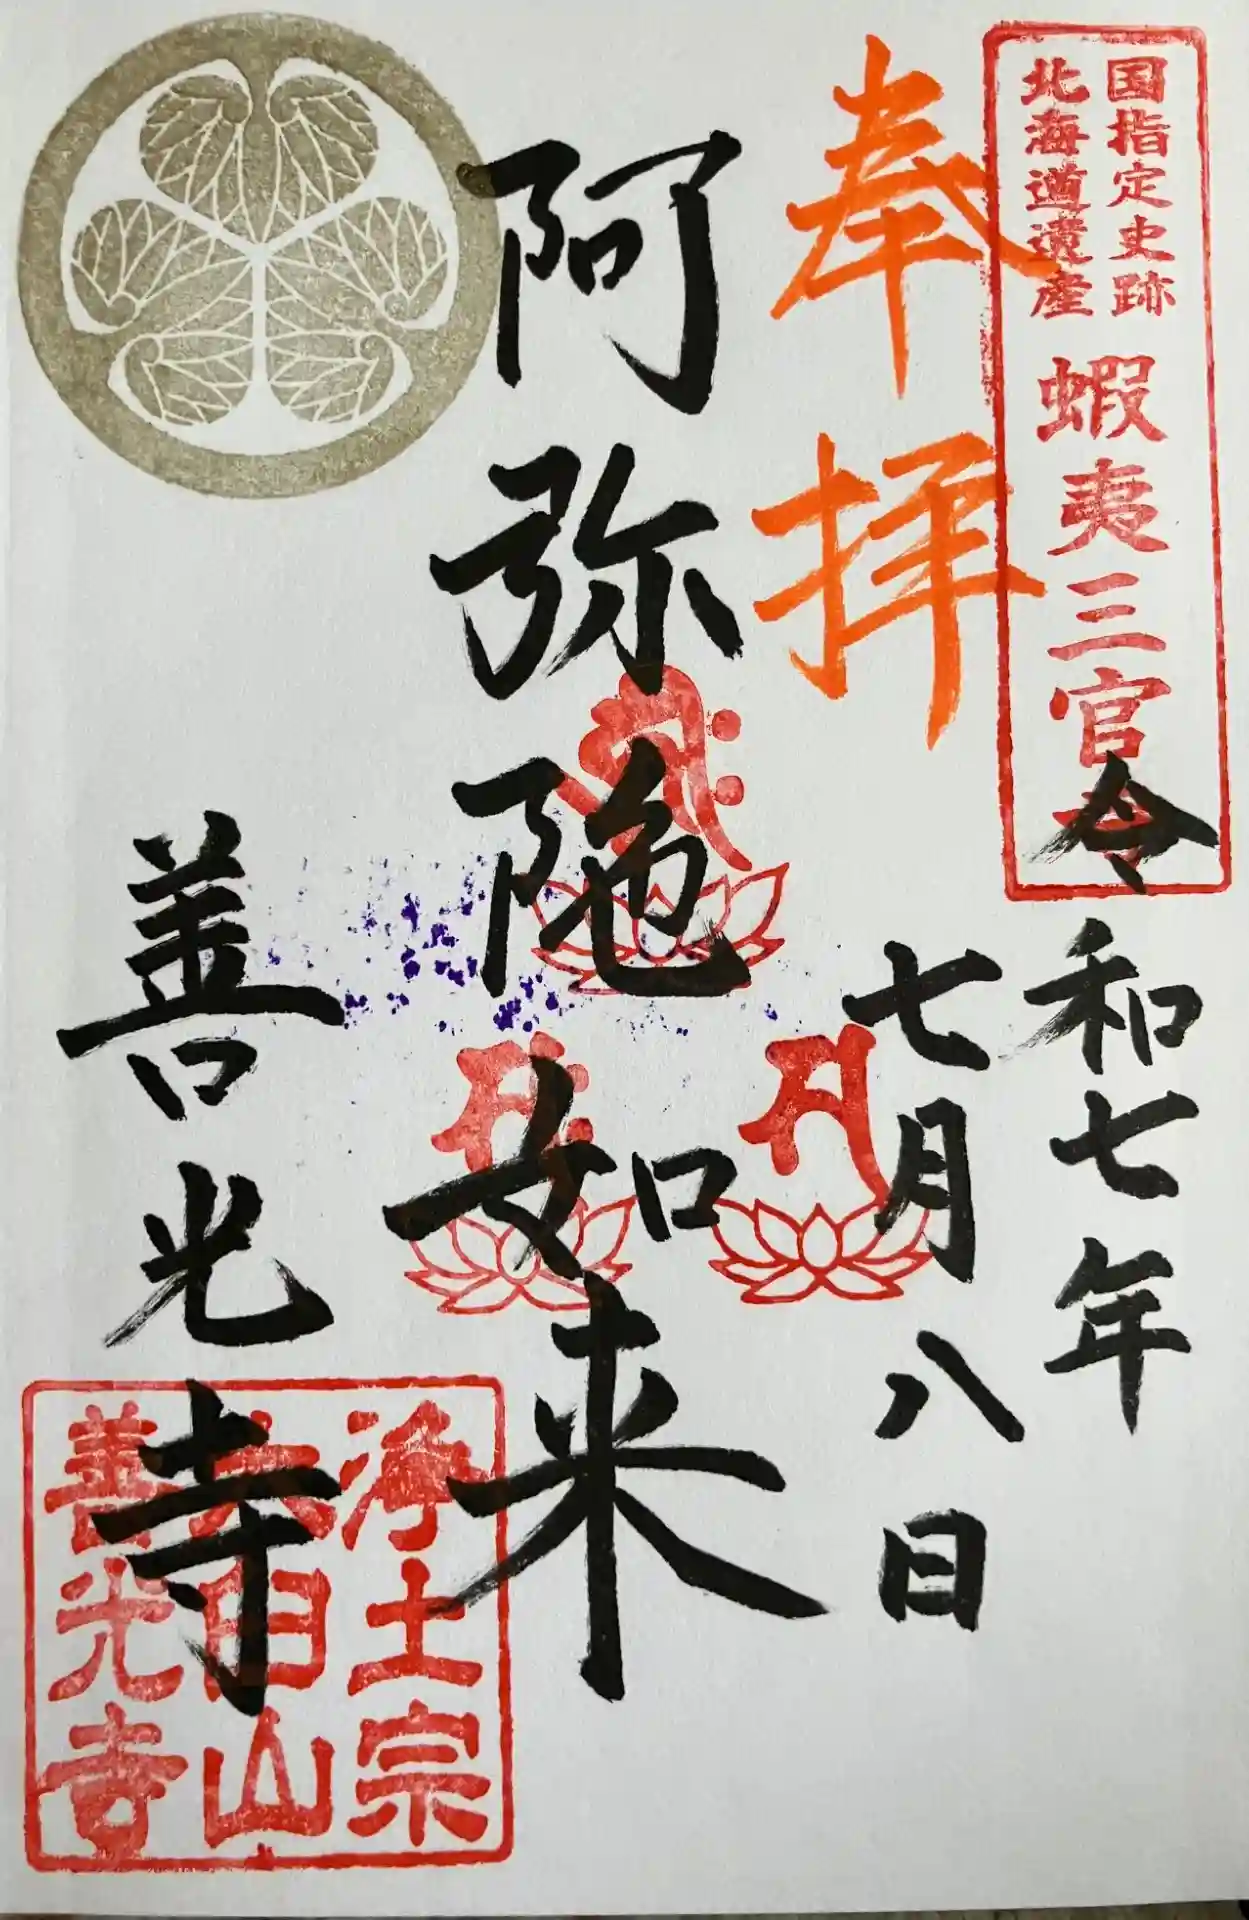 国指定史跡
北海道遺産
蝦夷三官寺
奉拝
令和七年
七月八日
阿弥陀如来
善光寺
浄土宗
大臼山
善光寺